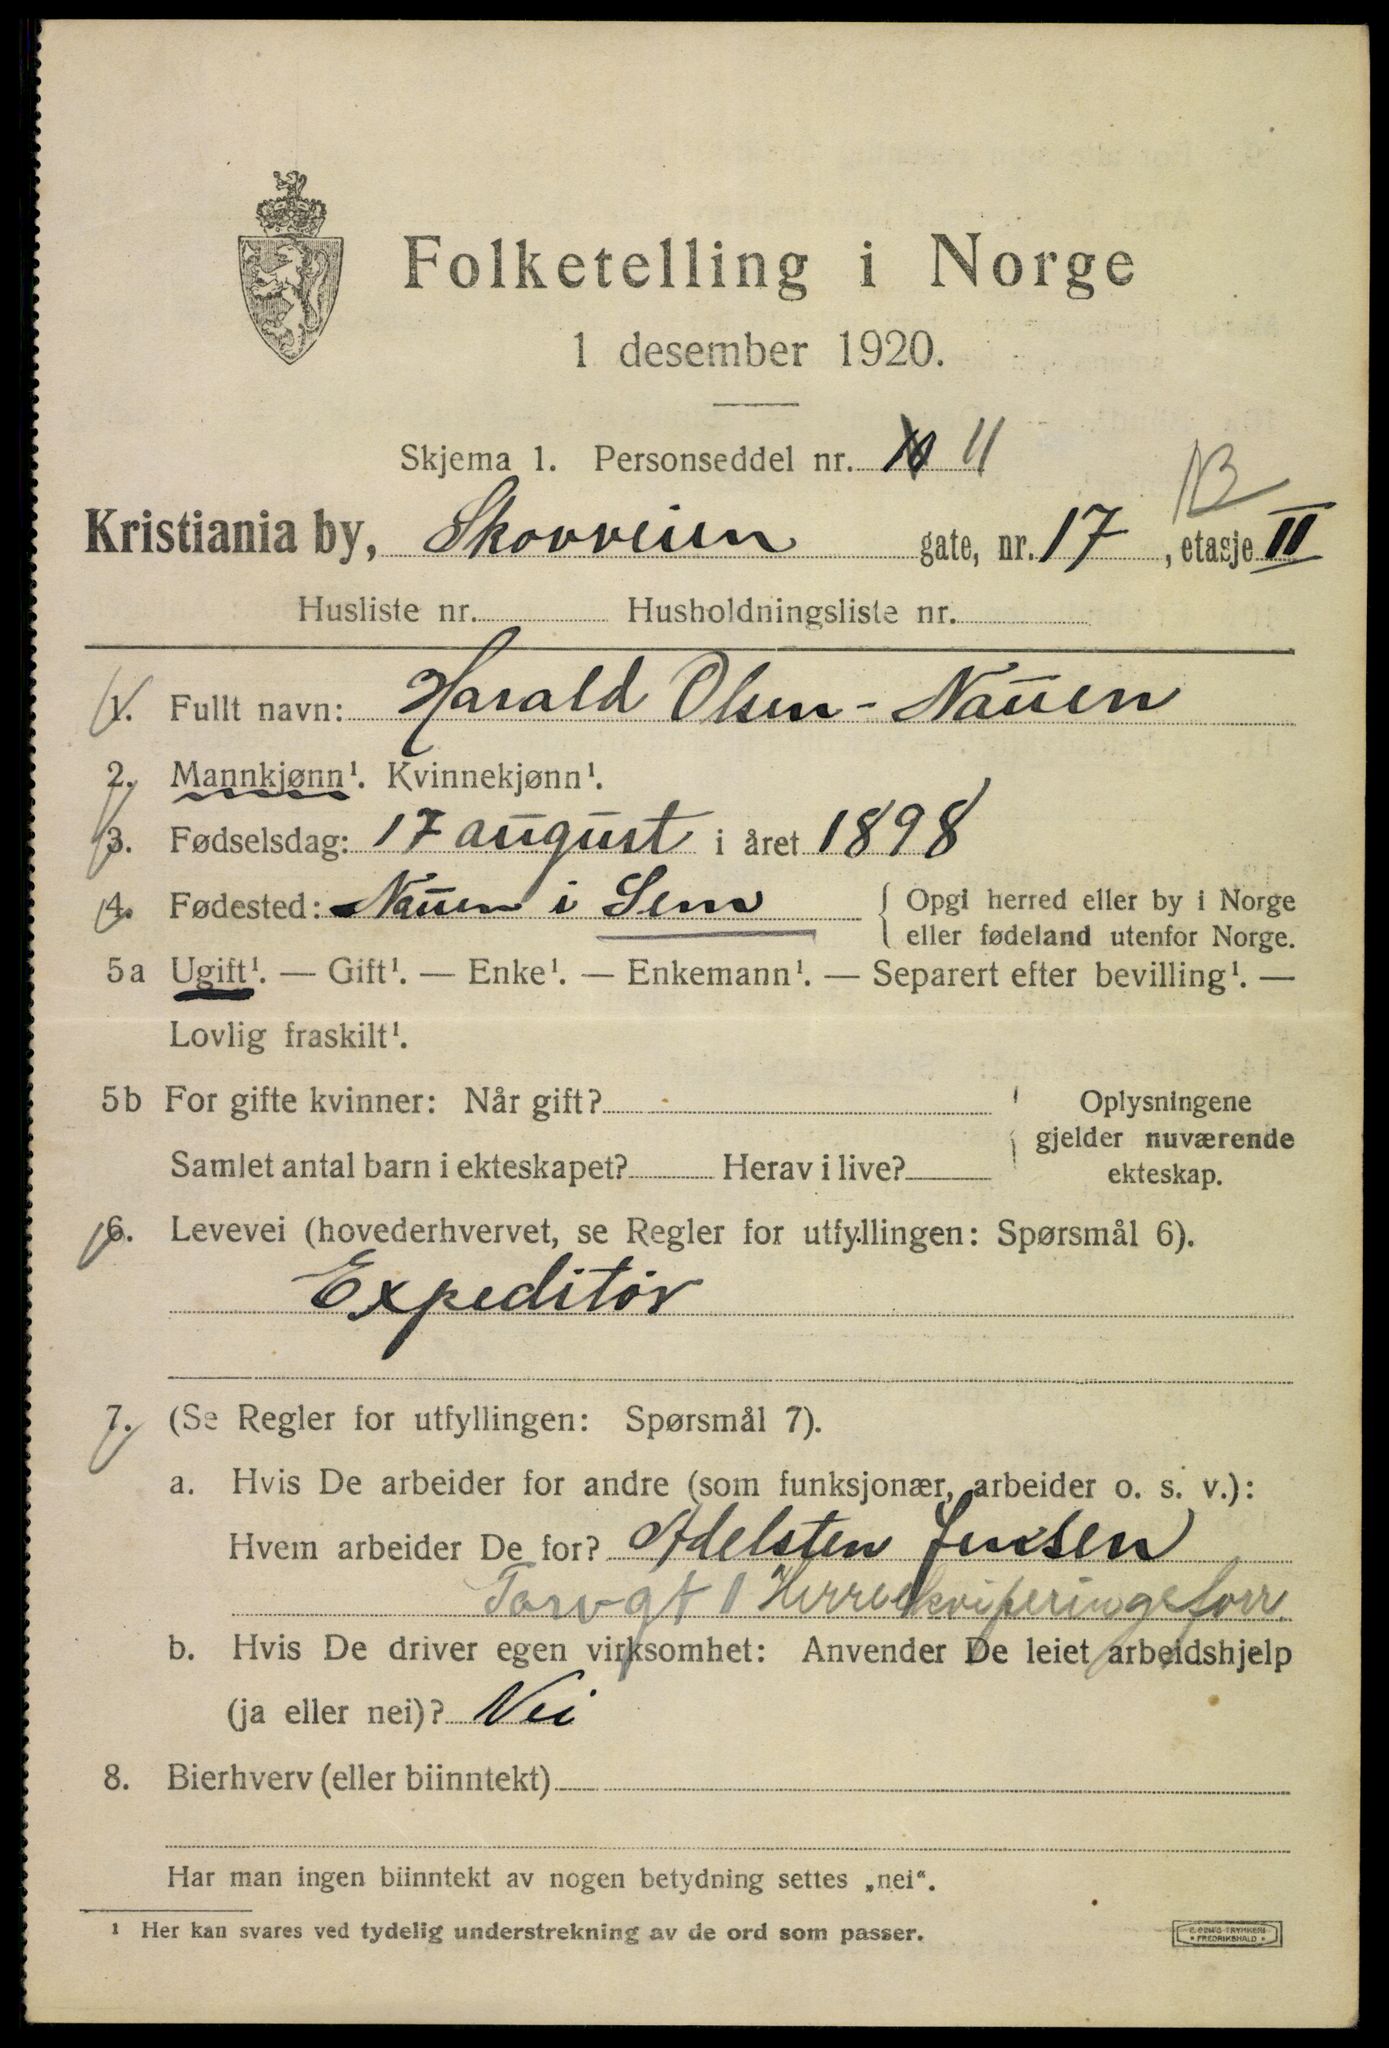 Folketelling i Norge
1 desember 1920.
Skjema 1. Personseddel nr. 10 11
Kristiania by, Skovveien gate, nr. 17, etasje II
Husliste nr. Husholdningsliste nr.
1. Fullt navn: Harald Olsen-Nauen
2. Mannkjønn¹. Kvinnekjønn¹.
3. Fødselsdag: 17 august i året 1898
4. Fødested: Nauen i Sem { Opgi herred eller by i Norge
eller fødeland utenfor Norge.
5a Ugift¹. — Gift¹. — Enke¹. — Enkemann¹. — Separert efter bevilling¹. —
Lovlig fraskilt¹.
5b For gifte kvinner: Når gift? Oplysningene
gjelder nuværende
Samlet antal barn i ekteskapet? Herav i live? ekteskap.
6. Levevei (hovederhvervet, se Regler for utfyllingen: Spørsmål 6).
Expeditør
7. (Se Regler for utfyllingen: Spørsmål 7).
a. Hvis De arbeider for andre (som funksjonær, arbeider o. s. v.):
Hvem arbeider De for? Adelsten Jensen
Torvgt 1 Herreekviperingsforr.
b. Hvis De driver egen virksomhet: Anvender De leiet arbeidshjelp
(ja eller nei)? Nei
8. Bierhverv (eller biinntekt)
Har man ingen biinntekt av nogen betydning settes „nei“.
¹ Her kan svares ved tydelig understrekning av de ord som passer.
FREDRIKSHALD